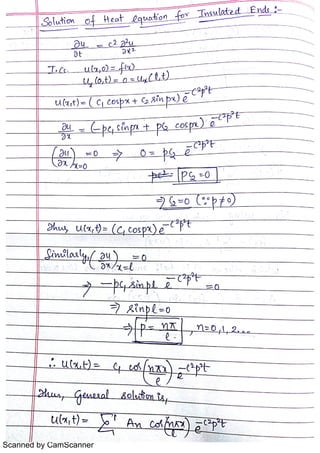 Solution of Heat equation for Insulated Ends :-
∂u/∂t = c² ∂²u/∂x²
I.C. u(x,0) = f(x)
uₓ(0,t) = 0 = uₓ(l,t)
u(x,t) = (c₁ cospx + c₂ sinpx) e^(-c²p²t)
∂u/∂x = (-pc₁ sinpx + pc₂ cospx) e^(-c²p²t)
(∂u/∂x)ₓ₌₀ = 0 ⇒ 0 = pc₂ e^(-c²p²t)
pc₂ = 0
⇒ c₂ = 0 (∵ p ≠ 0)
Thus, u(x,t) = (c₁ cospx) e^(-c²p²t)
Similarly, (∂u/∂x)ₓ₌l = 0
⇒ -pc₁ sinpl e^(-c²p²t) = 0
⇒ sinpl = 0
⇒ p = nπ/l , n = 0,1,2...
∴ u(x,t) = c₁ cos(nπx/l) e^(-c²p²t)
Thus, General solution is,
u(x,t) = Σ An cos(nπx/l) e^(-c²p²t)
Scanned by CamScanner